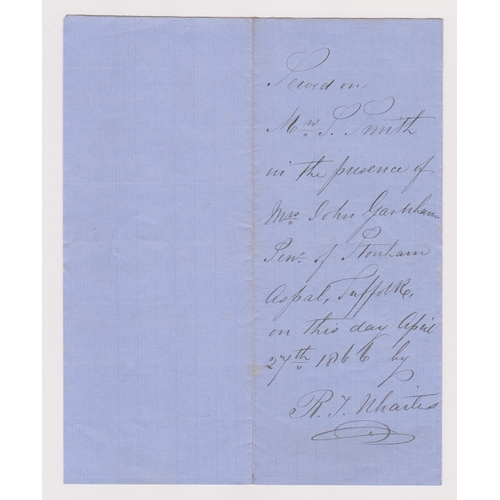 Served on
Mrs. S. Smith
in the presence of
Mrs. John Garnham
Senr. of Stonham
Aspal, Suffolk,
on this day April
27th 1866 by
R. J. Whaites